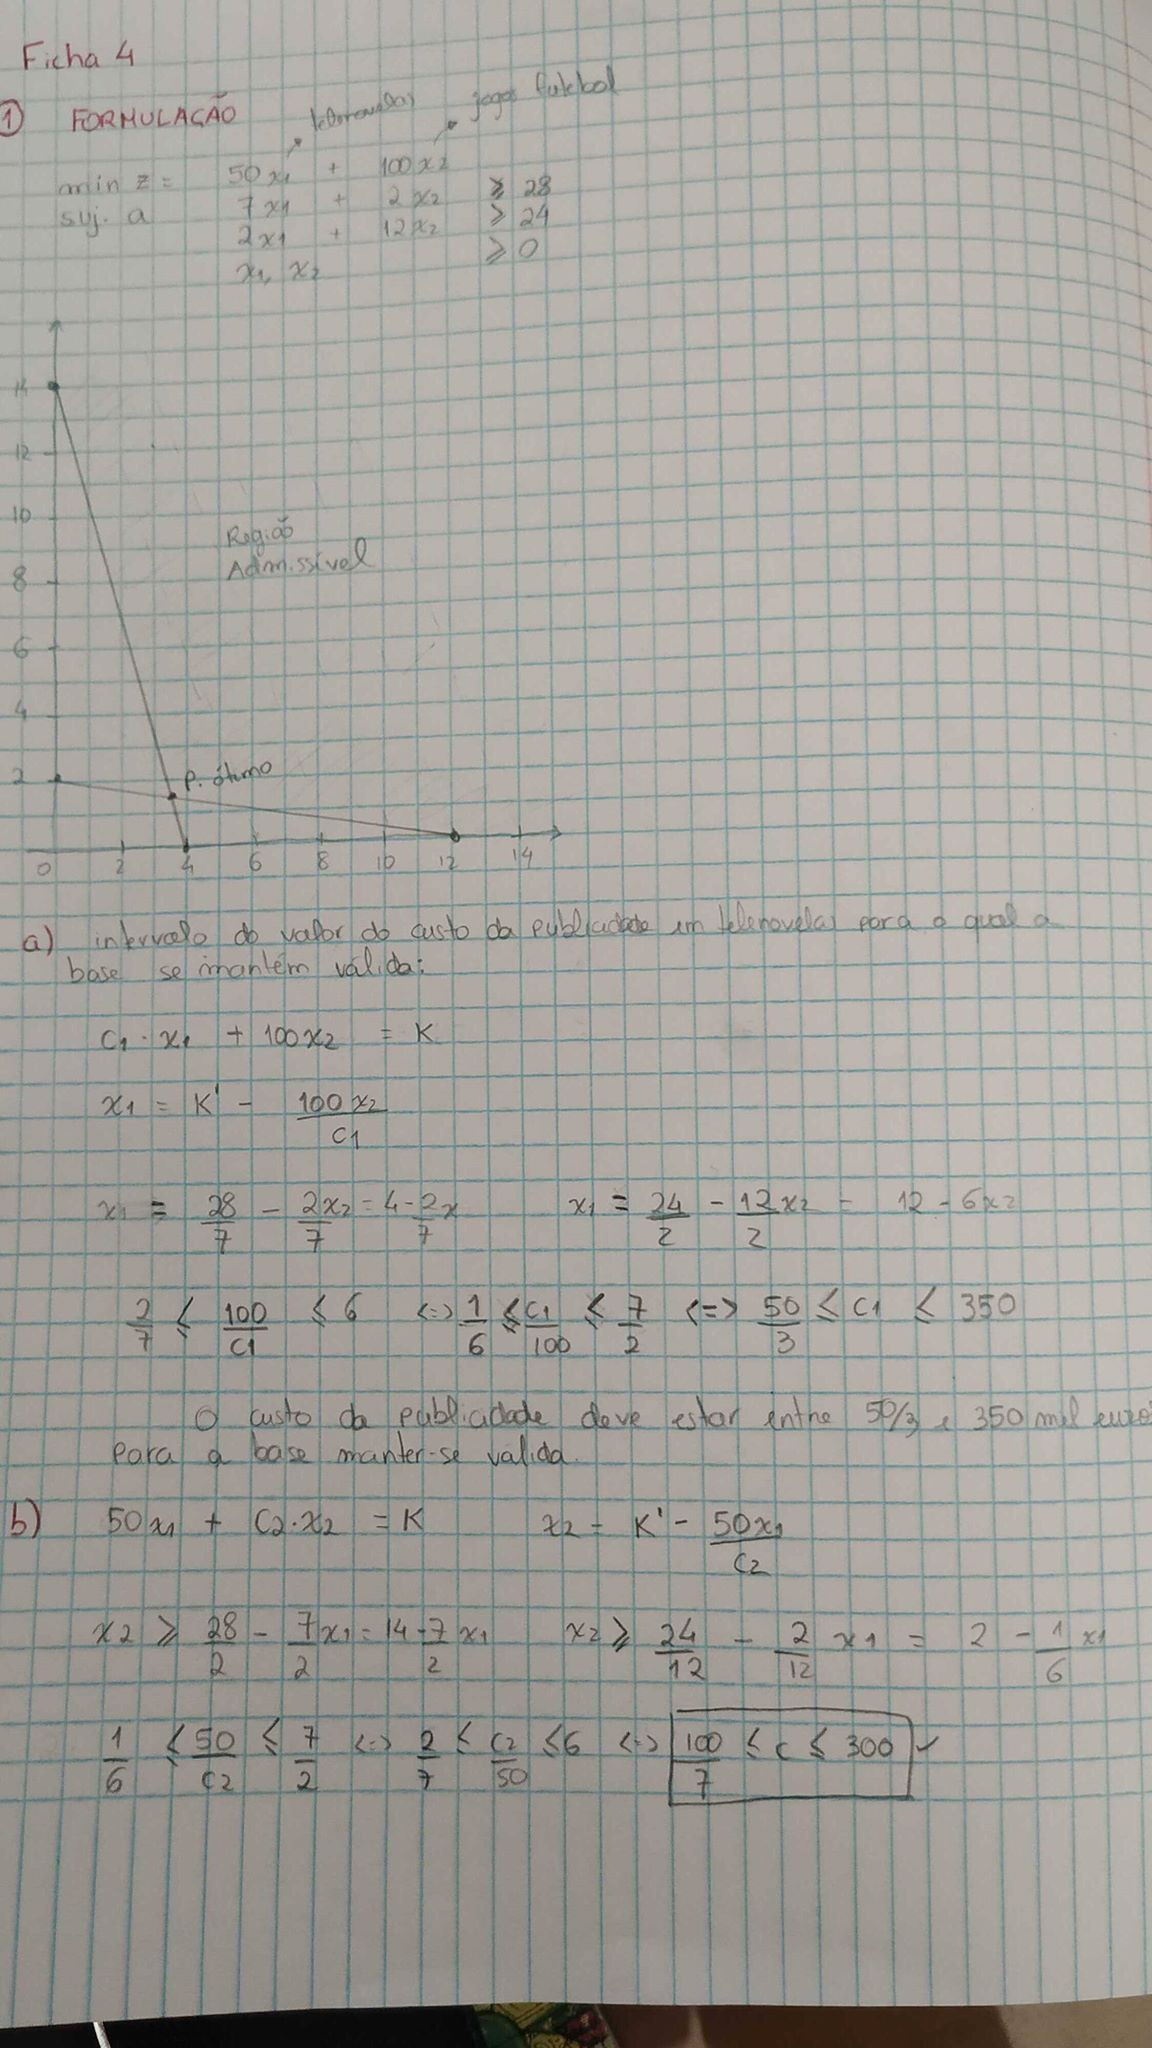 Ficha 4
1 FORMULAÇÃO
telenovelas
jogos futebol
min z = 50x1 + 100x2
suj. a 7x1 + 2x2 ≥ 28
2x1 + 12x2 ≥ 24
x1, x2 ≥ 0
14
12
10
8
6
4
2
Região
Admissível
P. ótimo
0 2 4 6 8 10 12 14
a) intervalo do valor do custo da publicidade em telenovelas para o qual a
base se mantém válida:
C1 · x1 + 100x2 = K
x1 = K' - 100x2/C1
x1 = 28/7 - 2x2/7 = 4 - 2/7 x x1 = 24/2 - 12/2 x2 = 12 - 6x2
2/7 ≤ 100/C1 ≤ 6 <=> 1/6 ≤ C1/100 ≤ 7/2 <=> 50/3 ≤ C1 ≤ 350
O custo da publicidade deve estar entre 50/3 e 350 mil euros
para a base manter-se válida.
b) 50x1 + C2·x2 = K x2 = K' - 50x1/C2
x2 ≥ 28/2 - 7/2 x1 = 14 - 7/2 x1 x2 ≥ 24/12 - 2/12 x1 = 2 - 1/6 x1
1/6 ≤ 50/C2 ≤ 7/2 <=> 2/7 ≤ C2/50 ≤ 6 <=> 100/7 ≤ C ≤ 300 ✓